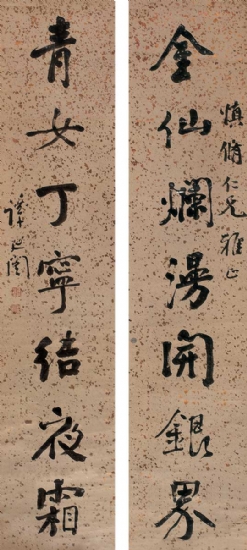 慎脩仁兄雅正
金仙爛漫開銀界
青女丁寧結夜霜
譚延闓